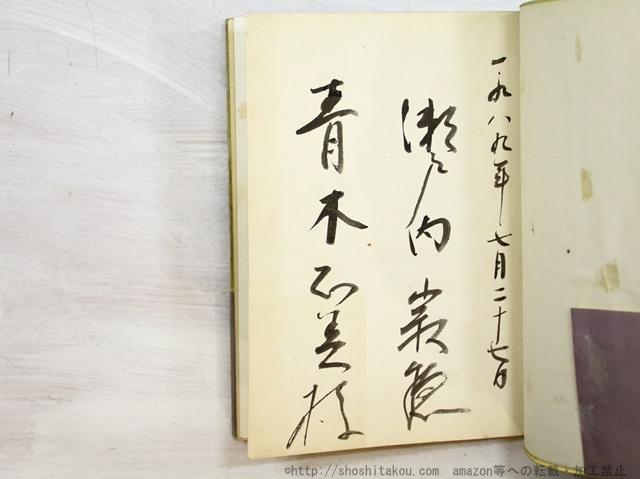 一九八九年七月二十七日
瀬戸内寂聴
青木正美様
©http://shoshitakou.com amazon等への転載・加工禁止